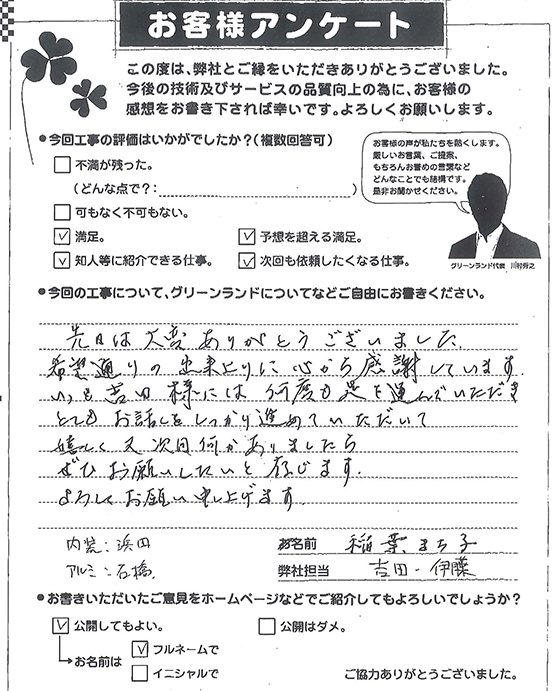 お客様アンケート
この度は、弊社とご縁をいただきありがとうございました。
今後の技術及びサービスの品質向上の為に、お客様の
感想をお書き下されば幸いです。よろしくお願いします。
●今回工事の評価はいかがでしたか？（複数回答可）
不満が残った。
（どんな点で？：　　　）
可もなく不可もない。
満足。
予想を超える満足。
知人等に紹介できる仕事。
次回も依頼したくなる仕事。
お客様の声が私たちを動くします。
厳しいお言葉、ご提案、
もちろんお誉めの言葉など
どんなことでも結構です。
是非お聞かせください。
グリーンランド代表 川村
●今回の工事について、グリーンランドについてなどご自由にお書きください。
先日は大変ありがとうございました
希望通りの出来上りに心から感謝しています.
いつも吉田様には何度も足を運んでいただき
とてもお話しをしっかり進めていただいて
嬉しく又次回何かありましたら
ぜひお願いしたいと存じます.
よろしくお願い申し上げます.
内装:浜田
お名前 稲葉まち子
アルミ:石橋.
弊社担当 吉田・伊藤
●お書きいただいたご意見をホームページなどでご紹介してもよろしいでしょうか？
公開してもよい。
公開はダメ。
お名前は
フルネームで
イニシャルで
ご協力ありがとうございました。